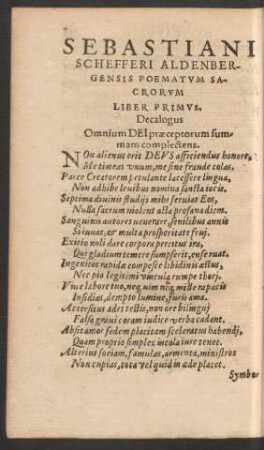 SEBASTIANI
SCHEFFERI ALDENBER-
GENSIS POEMATVM SA-
CRORVM
LIBER PRIMVS.
Decalogus
Omnium DEI præceptorum sum-
mam complectens.
NOn alienus erit DEVS afficiendus honore,
Me timeas vnum, me sine fraude colas.
Parce Creatorem petulante lacessere lingua,
Non adhibe leuibus nomina sancta iocis.
Septima diuinis studijs mihi seruiat Eos,
Nulla sacrum violent acta profana diem.
Sanguinis autores venerare, senilibus annis
Soluas, & multa prosperitate frui.
Exitio noli dare corpora percitus ira,
Qui gladium temere sumpserit, ense ruat.
Ingenitos rapidæ compesce libidinis æstus,
Nec pia legitimi vincula rumpe thori.
Viue labore tuo, neq; uim neq; mille rapacis
Insidias, dempto lumine, furis ama.
Accersitus ades testis, non ore bilingui
Falsa graui coram iudice verba cadant.
Absit amor sedem placitam sceleratus habendi,
Quam proprio simplex incola iure tenet.
Alterius sociam, famulas, armenta, ministros
Non cupias, tota vel quid in æde placet.
Symbo-